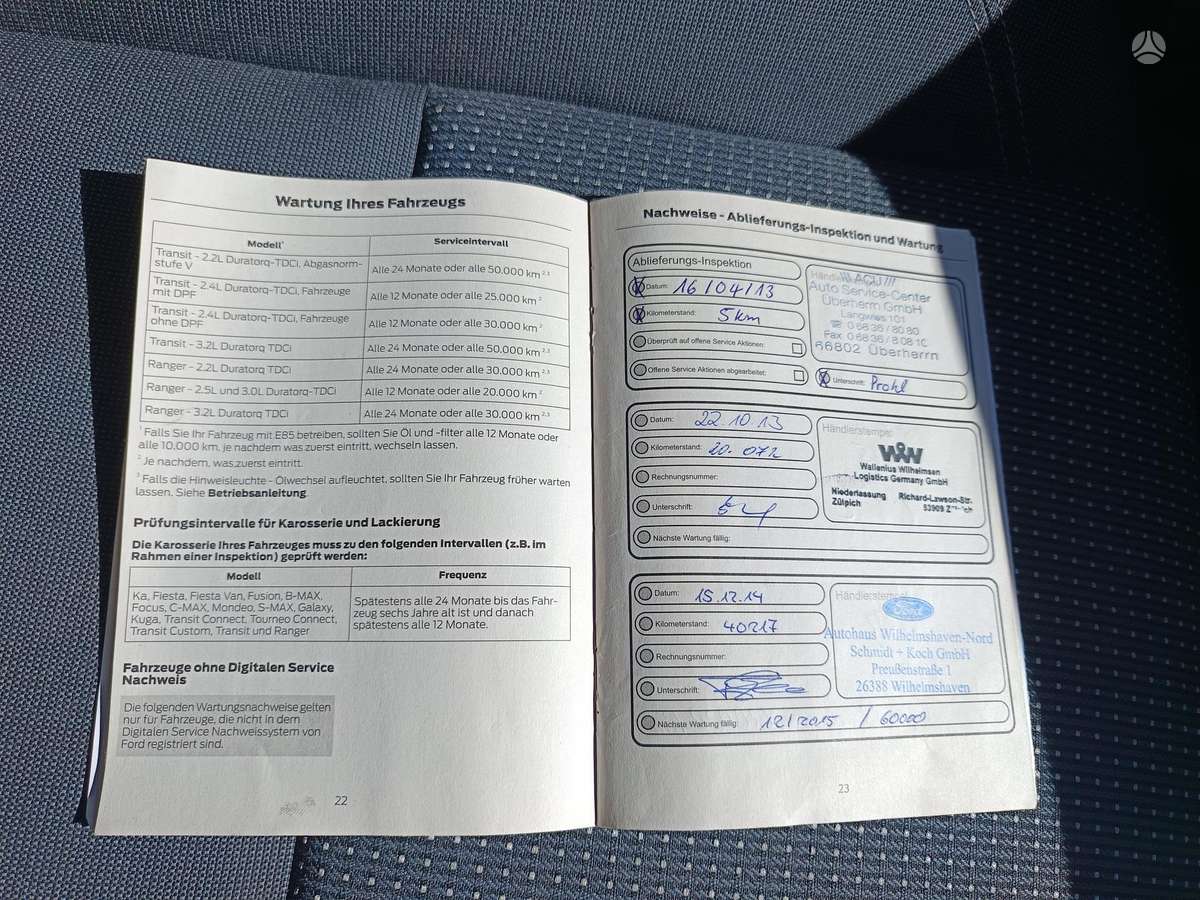 Wartung Ihres Fahrzeugs
Modell¹ Serviceintervall
Transit - 2.2L Duratorq-TDCi, Abgasnorm-
stufe V
Alle 24 Monate oder alle 50.000 km ²,³
Transit - 2.4L Duratorq-TDCi, Fahrzeuge
mit DPF
Alle 12 Monate oder alle 25.000 km ²
Transit - 2.4L Duratorq-TDCi, Fahrzeuge
ohne DPF
Alle 12 Monate oder alle 30.000 km ²
Transit - 3.2L Duratorq TDCi Alle 24 Monate oder alle 50.000 km ²,³
Ranger - 2.2L Duratorq-TDCi Alle 24 Monate oder alle 30.000 km ²,³
Ranger - 2.5L und 3.0L Duratorq-TDCi Alle 12 Monate oder alle 20.000 km ²
Ranger - 3.2L Duratorq TDCi Alle 24 Monate oder alle 30.000 km ²,³
¹ Falls Sie Ihr Fahrzeug mit E85 betreiben, sollten Sie Öl und -filter alle 12 Monate oder
alle 10.000 km, je nachdem was zuerst eintritt, wechseln lassen.
² Je nachdem, was zuerst eintritt.
³ Falls die Hinweisleuchte - Ölwechsel aufleuchtet, sollten Sie Ihr Fahrzeug früher warten
lassen. Siehe Betriebsanleitung.
Prüfungsintervalle für Karosserie und Lackierung
Die Karosserie Ihres Fahrzeuges muss zu den folgenden Intervallen (z.B. im
Rahmen einer Inspektion) geprüft werden:
Modell Frequenz
Ka, Fiesta, Fiesta Van, Fusion, B-MAX,
Focus, C-MAX, Mondeo, S-MAX, Galaxy,
Kuga, Transit Connect, Tourneo Connect,
Transit Custom, Transit und Ranger
Spätestens alle 24 Monate bis das Fahr-
zeug sechs Jahre alt ist und danach
spätestens alle 12 Monate.
Fahrzeuge ohne Digitalen Service
Nachweis
Die folgenden Wartungsnachweise gelten
nur für Fahrzeuge, die nicht in dem
Digitalen Service Nachweissystem von
Ford registriert sind.
22
Nachweise - Ablieferungs-Inspektion und Wartung
Ablieferungs-Inspektion
Datum: 16/04/13
Kilometerstand: 5km
Überprüft auf offene Service Aktionen:
Offene Service Aktionen abgearbeitet:
/// ACU ///
Auto Service-Center
Überherrn GmbH
Langwies 101
☎ 0 68 36 / 80 80
Fax 0 68 36 / 8 08 10
66802 Überherrn
Unterschrift: Prohl
Datum: 22.10.13
Kilometerstand: 20.072
Rechnungsnummer:
Unterschrift:
Nächste Wartung fällig:
Händlerstempel
WW
Wallenius Wilhelmsen
Logistics Germany GmbH
Niederlassung Richard-Lawson-Str.
Zülpich 53909
Datum: 15.12.14
Kilometerstand: 40217
Rechnungsnummer:
Unterschrift:
Nächste Wartung fällig: 12/2015 / 60000
Händlerstempel
Ford
Autohaus Wilhelmshaven-Nord
Schmidt + Koch GmbH
Preußenstraße 1
26388 Wilhelmshaven
23